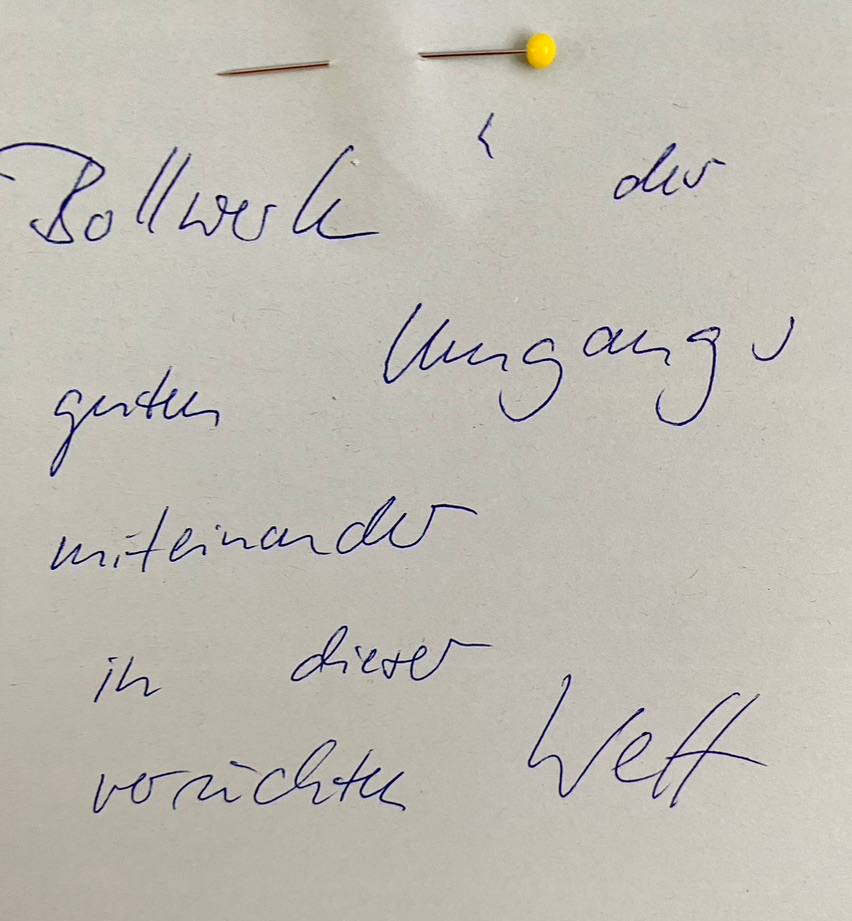 Bollwerk " des
guten Umgangs
miteinander
in dieser
verrückten Welt